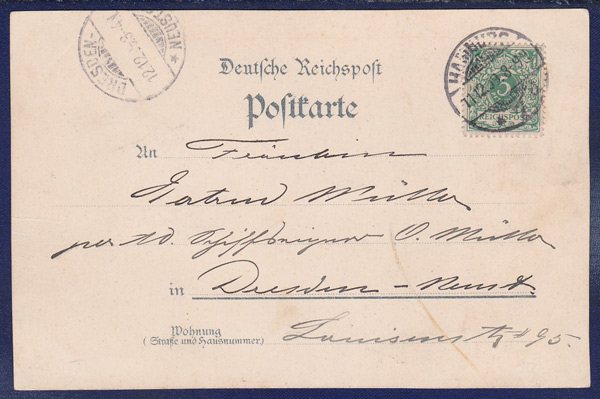 DRESDEN-NEUSTADT
12.12.93.
HAMBURG
11.12.93
5
REICHSPOST
Deutsche Reichspost
Postkarte
An Fräulein
Müller
per Ad. Schiffseigner O. Müller
in Dresden-Neust
Wohnung
(Straße und Hausnummer)
Louisenstr # 95.